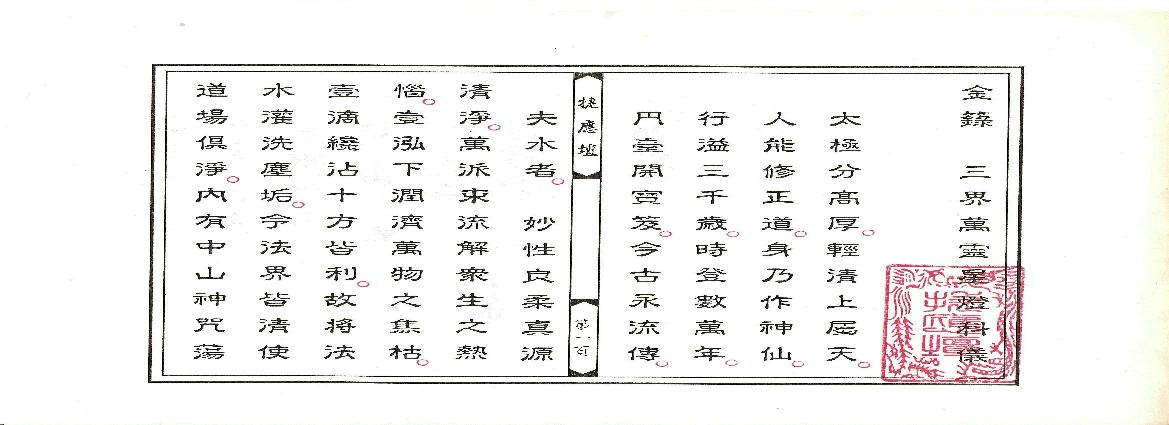 金錄　三界萬靈星燈科儀
太極分高厚。輕清上屬天。
人能修正道。身乃作神仙。
行溢三千歲。時登數萬年。
円臺開寶笈。今古永流傳。
捷應壇
第一頁
夫水者。妙性良柔真源
清淨。萬派東流解眾生之熱
惱。壹泓下潤濟萬物之焦枯。
壹滴纔沾十方皆利。故將法
水灌洗塵垢。令法界皆清使
道場俱淨。內有中山神咒蕩